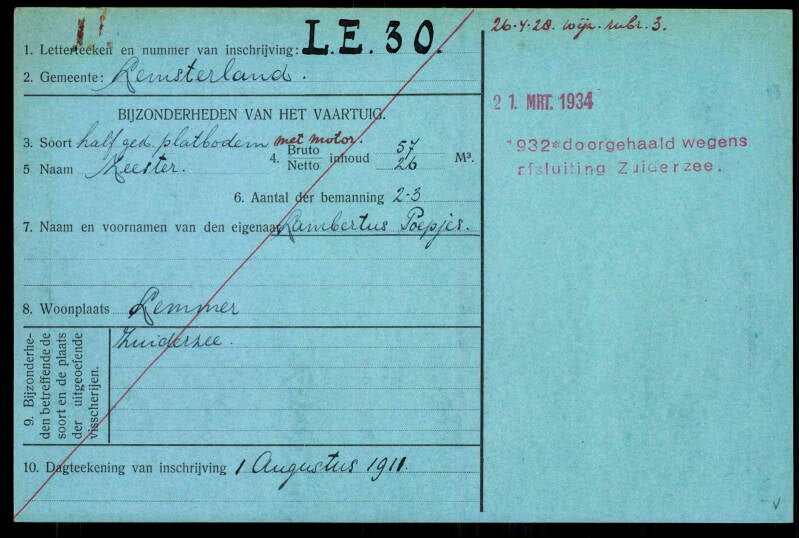 1. Letterteeken en nummer van inschrijving: L.E. 30.
2. Gemeente: Lemsterland.
BIJZONDERHEDEN VAN HET VAARTUIG.
3. Soort half ged. platbodem met motor.
4. Bruto Netto inhoud 57 26 M³.
5 Naam
6. Aantal der bemanning 2-3
7. Naam en voornamen van den eigenaar Lambertus Poepjes.
8. Woonplaats Lemmer
9. Bijzonderhe-
den betreffende de
soort en de plaats
der uitgeoefende
visscherijen.
Zuiderzee.
10. Dagteekening van inschrijving 1 Augustus 1911.
26-4-28. wijz. rubr. 3.
21. MRT. 1934
1932 doorgehaald wegens
afsluiting Zuiderzee.